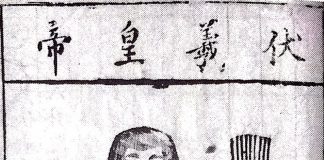 伏羲皇帝